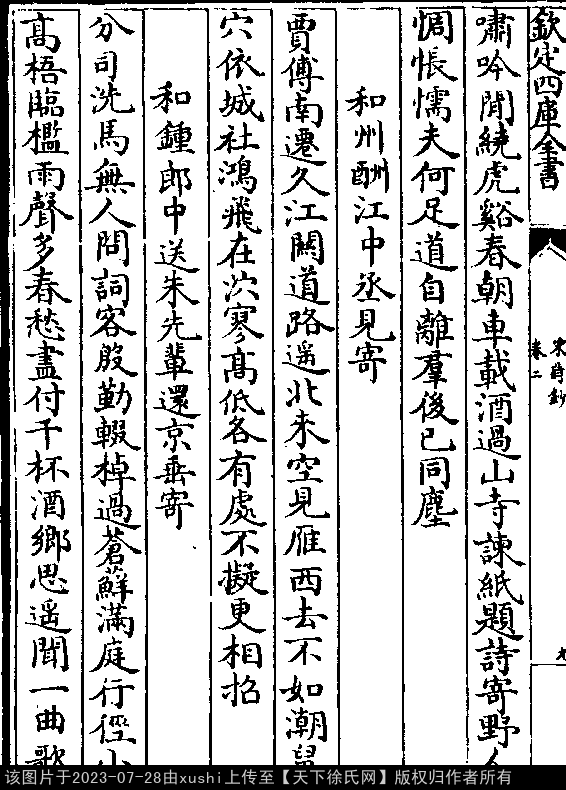 欽定四庫全書
宋詩鈔
卷二
九
嘯吟閒繞虎谿春朝車載酒過山寺諫紙題詩寄野人
惆悵懦夫何足道自離羣後已同塵
和州酬江中丞見寄
賈傅南遷久江關道路遥北来空見雁西去不如潮鼠
穴依城社鴻飛在泬寥高低各有處不擬更相招
和鍾郎中送朱先輩還京垂寄
分司洗馬無人問詞客殷勤輟棹過蒼蘚滿庭行徑小
高梧臨檻雨聲多春愁盡付千杯酒鄉思遥聞一曲歌
该图片于2023-07-28由xushi上传至【天下徐氏网】版权归作者所有